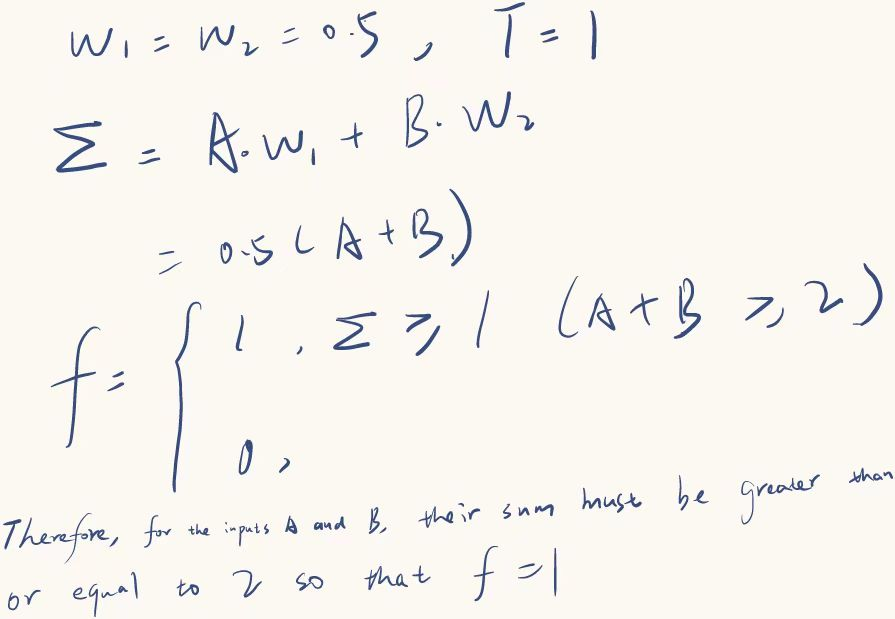 W₁ = W₂ = 0.5 , T = 1
Σ = A·W₁ + B·W₂
= 0.5 ( A + B )
f = { 1 , Σ ⩾ 1 (A + B ⩾ 2)
0 ,
Therefore, for the inputs A and B, their sum must be greater than
or equal to 2 so that f = 1